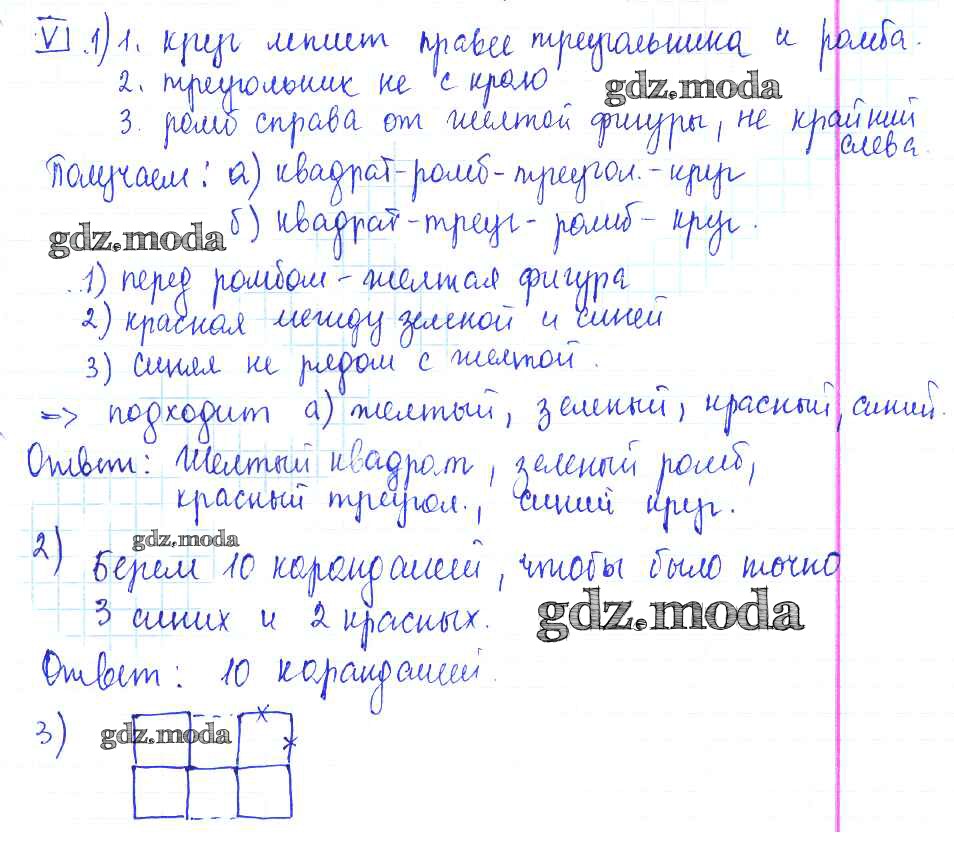 V 1) 1. круг лежит правее треугольника и ромба.
2. треугольник не с краю
gdz.moda
3. ромб справа от желтой фигуры, не крайний
слева.
Получаем: а) квадрат-ромб-треугол.-круг
б) квадрат-треуг-ромб-круг.
gdz.moda
1) перед ромбом-желтая фигура
2) красная между зеленой и синей
3) синяя не рядом с желтой.
=> подходит а) желтый, зеленый, красный, синий.
Ответ: Желтый квадрат, зеленый ромб,
красный треугол., синий круг.
gdz.moda
2) Берем 10 карандашей, чтобы было точно
3 синих и 2 красных.
gdz.moda
Ответ: 10 карандашей.
3)
gdz.moda